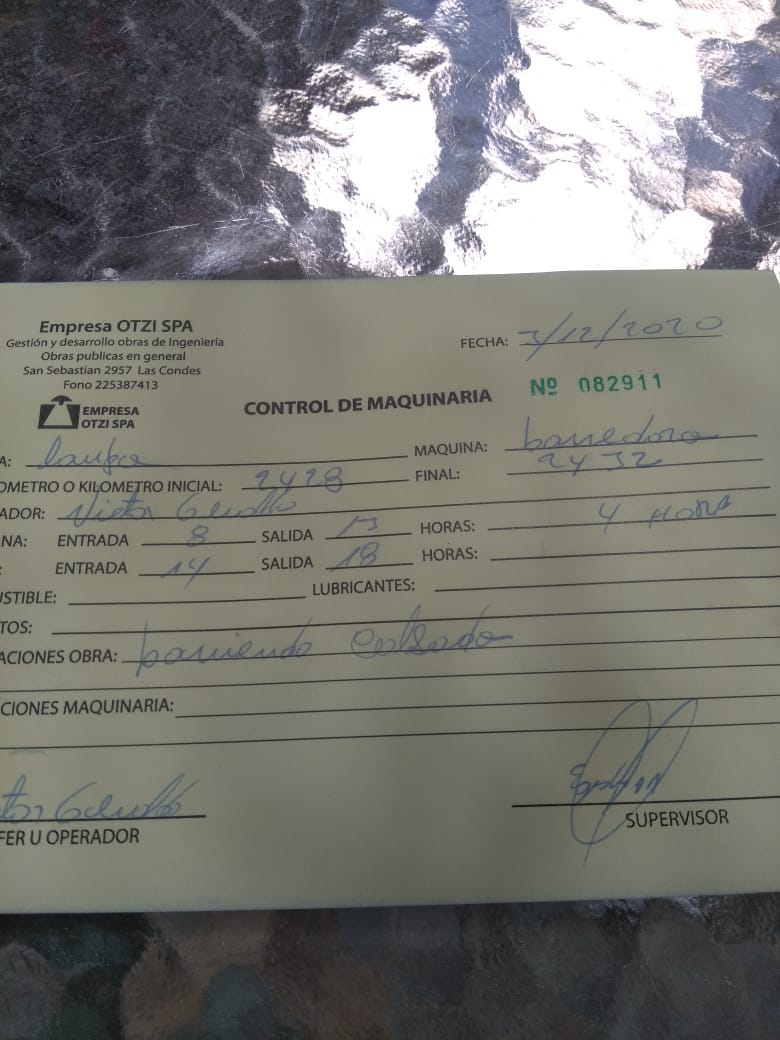 Empresa OTZI SPA
Gestión y desarrollo obras de Ingeniería
Obras publicas en general
San Sebastian 2957 Las Condes
Fono 225387413
EMPRESA
OTZI SPA
FECHA: 3/12/2020
CONTROL DE MAQUINARIA
Nº 082911
A: MAQUINA: barredora
OMETRO O KILOMETRO INICIAL: 2428 FINAL: 2432
ADOR: Victor
NA: ENTRADA 8 SALIDA 13 HORAS: 4 HORA
: ENTRADA 14 SALIDA 18 HORAS:
USTIBLE: LUBRICANTES:
TOS:
ACIONES OBRA: barriendo calsada
CIONES MAQUINARIA:
FER U OPERADOR
SUPERVISOR